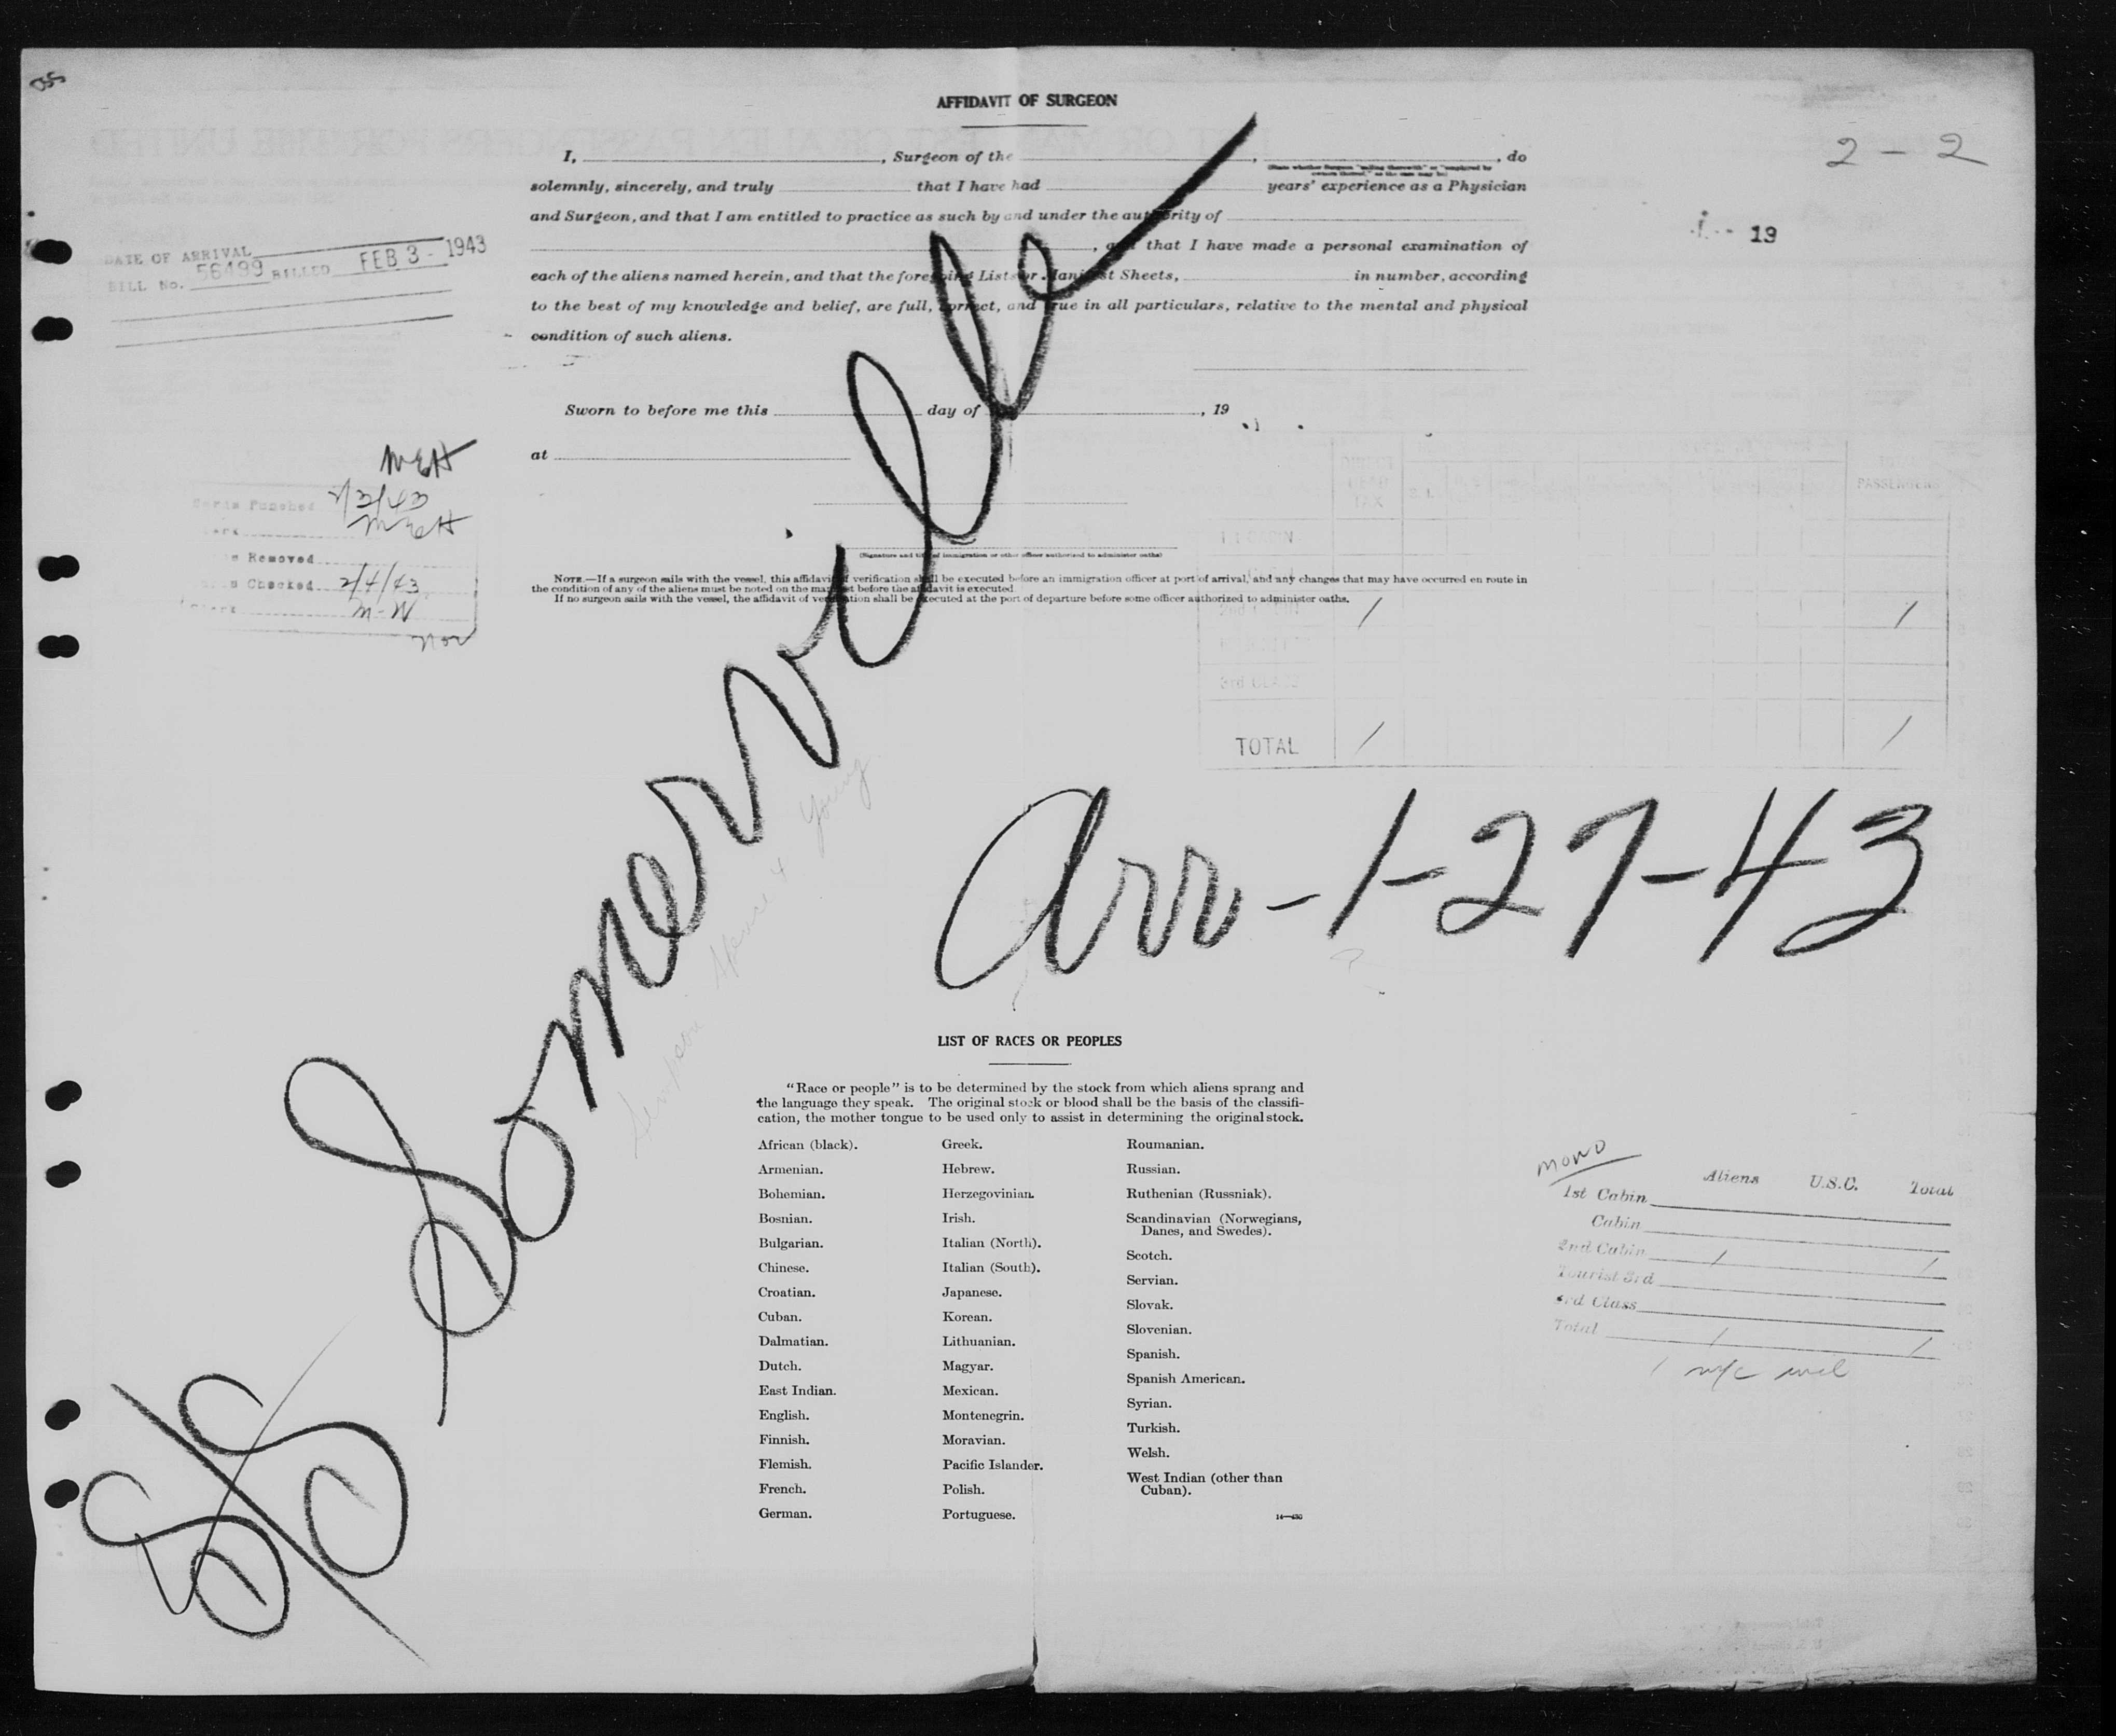 AFFIDAVIT OF SURGEON
2 - 2
I, , Surgeon of the , , do
solemnly, sincerely, and truly that I have had years' experience as a Physician
and Surgeon, and that I am entitled to practice as such by and under the authority of
, and that I have made a personal examination of
each of the aliens named herein, and that the foregoing Lists or Manifest Sheets, in number, according
to the best of my knowledge and belief, are full, correct, and true in all particulars, relative to the mental and physical
condition of such aliens.
19
DATE OF ARRIVAL
BILL No. 56499 BILLED FEB 3 - 1943
Sworn to before me this day of , 19
at
(Signature and title of immigration or other officer authorized to administer oaths)
NOTE.—If a surgeon sails with the vessel, this affidavit of verification shall be executed before an immigration officer at port of arrival, and any changes that may have occurred en route in
the condition of any of the aliens must be noted on the manifest before the affidavit is executed
If no surgeon sails with the vessel, the affidavit of verification shall be executed at the port of departure before some officer authorized to administer oaths.
MEH
Punched
MEH
Removed
Checked 2/4/43
M-N
PASSENGERS
2nd CABIN / /
3rd CLASS
TOTAL / /
S/S Somerville
Arr - 1-27-43
LIST OF RACES OR PEOPLES
"Race or people" is to be determined by the stock from which aliens sprang and
the language they speak. The original stock or blood shall be the basis of the classifi-
cation, the mother tongue to be used only to assist in determining the original stock.
African (black).
Armenian.
Bohemian.
Bosnian.
Bulgarian.
Chinese.
Croatian.
Cuban.
Dalmatian.
Dutch.
East Indian.
English.
Finnish.
Flemish.
French.
German.
Greek.
Hebrew.
Herzegovinian.
Irish.
Italian (North).
Italian (South).
Japanese.
Korean.
Lithuanian.
Magyar.
Mexican.
Montenegrin.
Moravian.
Pacific Islander.
Polish.
Portuguese.
Roumanian.
Russian.
Ruthenian (Russniak).
Scandinavian (Norwegians,
Danes, and Swedes).
Scotch.
Servian.
Slovak.
Slovenian.
Spanish.
Spanish American.
Syrian.
Turkish.
Welsh.
West Indian (other than
Cuban).
14—430
Aliens U.S.C. Total
1st Cabin
Cabin
2nd Cabin / /
Tourist 3rd
3rd Class
Total / /